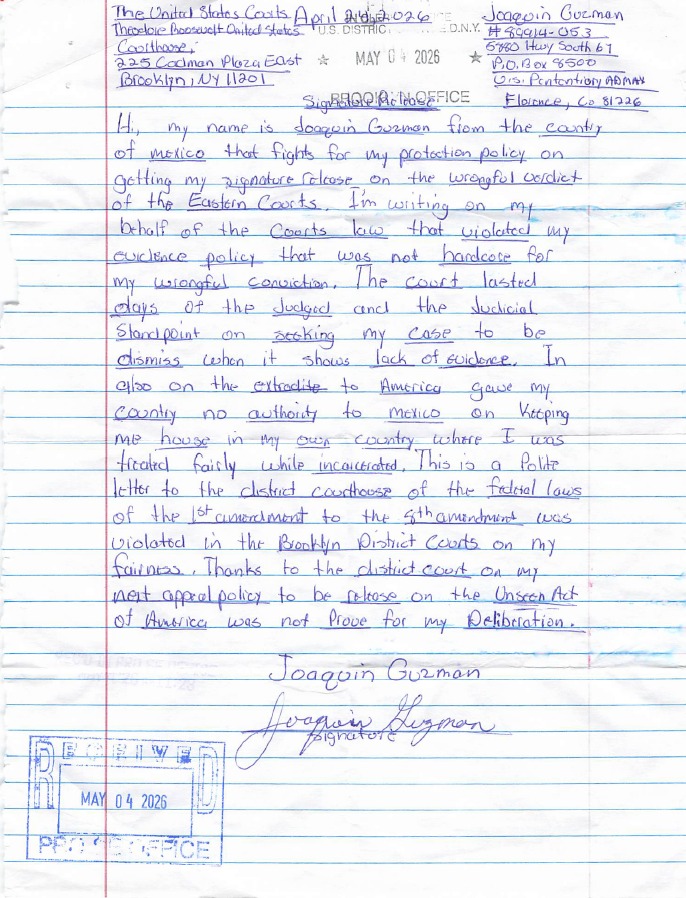 The United States Courts
April 24, 2026
Theodore Roosevelt United States
Courthouse,
225 Cadman Plaza East
Brooklyn, NY 11201
U.S. DISTRIC
E.D.N.Y.
★ MAY 04 2026 ★
BROOKLYN OFFICE
Joaquin Guzman
# 89914-053
5880 Hwy South 67
P.O. Box 8500
U.S. Pentontiary ADMAX
Florence, Co 81226
Signature Release
Hi, my name is Joaquin Guzman from the country
of mexico that fights for my protection policy on
getting my signature release on the wrongful verdict
of the Eastern Courts. I'm writing on my
behalf of the Courts law that violated my
evidence policy that was not hardcore for
my wrongful conviction. The court lasted
days of the Judged and the Judicial
Standpoint on seeking my case to be
dismiss when it shows lack of evidence. In
also on the extradite to America gave my
country no authority to mexico on Keeping
me house in my own country where I was
treated fairly while incarcerated. This is a Polite
letter to the district courthouse of the federal laws
of the 1st amendment to the 8th amendment was
violated in the Brooklyn District Courts on my
fairness. Thanks to the district court on my
next appeal policy to be release on the Unseen Act
of America was not Prove for my Deliberation.
Joaquin Guzman
Joaquin Guzman
Signature
RECEIVED
MAY 04 2026
PRO SE OFFICE